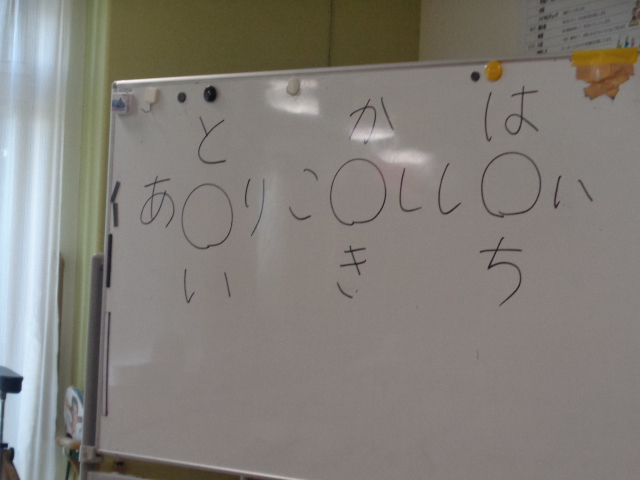 と か は
あ○りこ○しし○い
い き ち